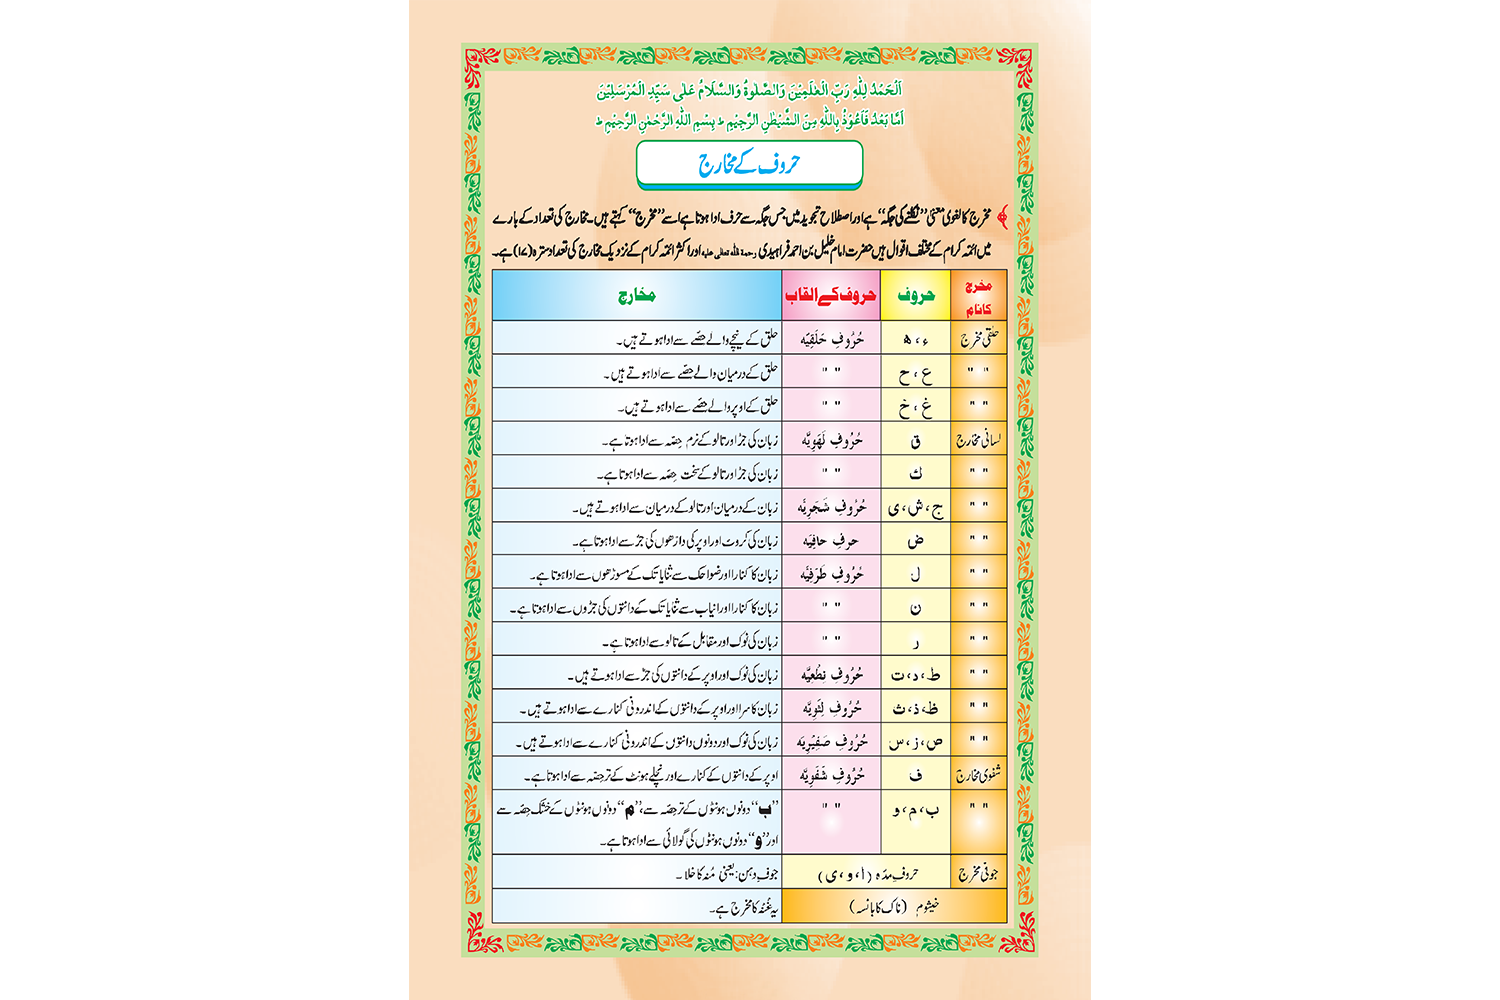 اَلْحَمْدُ لِلّٰهِ رَبِّ الْعٰلَمِیْنَ وَالصَّلٰوةُ وَالسَّلَامُ عَلٰی سَیِّدِ الْمُرْسَلِیْنَ
اَمَّا بَعْدُ فَاَعُوْذُ بِاللّٰهِ مِنَ الشَّیْطٰنِ الرَّجِیْمِ ؕ بِسْمِ اللّٰهِ الرَّحْمٰنِ الرَّحِیْمِ ؕ
حروف کے مخارج
مخرج کا لغوی معنٰی ’’نکلنے کی جگہ‘‘ ہے اور اصطلاحِ تجوید میں جس جگہ سے حرف ادا ہوتا ہے اسے ’’مخرج‘‘ کہتے ہیں۔ مخارج کی تعداد کے بارے
میں ائمہ کرام کے مختلف اقوال ہیں حضرت امام خلیل بن احمد فراہیدی رحمۃ اللہ تعالٰی علیہ اور اکثر ائمہ کرام کے نزدیک مخارج کی تعداد سترہ (۱۷) ہے۔
مخرج کا نام حروف حروف کے القاب مخارج
حلقی مخرج ء ، ھ حُرُوفِ حَلَقِیَّہ حلق کے نیچے والے حصّے سے ادا ہوتے ہیں۔
" " ع ، ح " " حلق کے درمیان والے حصّے سے ادا ہوتے ہیں۔
" " غ ، خ " " حلق کے اوپر والے حصّے سے ادا ہوتے ہیں۔
لسانی مخارج ق حُرُوفِ لَهَوِیَّہ زبان کی جڑ اور تالو کے نرم حِصّہ سے ادا ہوتا ہے۔
" " ك " " زبان کی جڑ اور تالو کے سخت حِصّہ سے ادا ہوتا ہے۔
" " ج ، ش ، ی حُرُوفِ شَجَرِیَّہ زبان کے درمیان اور تالو کے درمیان سے ادا ہوتے ہیں۔
" " ض حرفِ حافِیَہ زبان کی کروٹ اور اوپر کی داڑھوں کی جڑ سے ادا ہوتا ہے۔
" " ل حُرُوفِ طَرَفِیَّہ زبان کا کنارا اور ضواحک سے ثنایا تک کے مسوڑھوں سے ادا ہوتا ہے۔
" " ن " " زبان کا کنارا اور انیاب سے ثنایا تک کے دانتوں کی جڑوں سے ادا ہوتا ہے۔
" " ر " " زبان کی نوک اور مقابل کے تالو سے ادا ہوتا ہے۔
" " ط ، د ، ت حُرُوفِ نِطْعِیَّہ زبان کی نوک اور اوپر کے دانتوں کی جڑ سے ادا ہوتے ہیں۔
" " ظ ، ذ ، ث حُرُوفِ لِثَوِیَّہ زبان کا سرا اور اوپر کے دانتوں کے اندرونی کنارے سے ادا ہوتے ہیں۔
" " ص ، ز ، س حُرُوفِ صَفِیْرِیَہ زبان کی نوک اور دونوں دانتوں کے اندرونی کنارے سے ادا ہوتے ہیں۔
شفوی مخارج ف حُرُوفِ شَفَوِیَّہ اوپر کے دانتوں کے کنارے اور نچلے ہونٹ کے تر حصّہ سے ادا ہوتا ہے۔
" " ب ، م ، و " " ’’ب‘‘ دونوں ہونٹوں کے تر حصّہ سے، ’’م‘‘ دونوں ہونٹوں کے خشک حِصّہ سے
اور ’’و‘‘ دونوں ہونٹوں کی گولائی سے ادا ہوتا ہے۔
جوفی مخرج حروفِ مدّہ (ا ، و ، ی) جوفِ دہن: یعنی مُنہ کا خلا۔
خیشوم (ناک کا بانسہ) یہ غُنّہ کا مخرج ہے۔